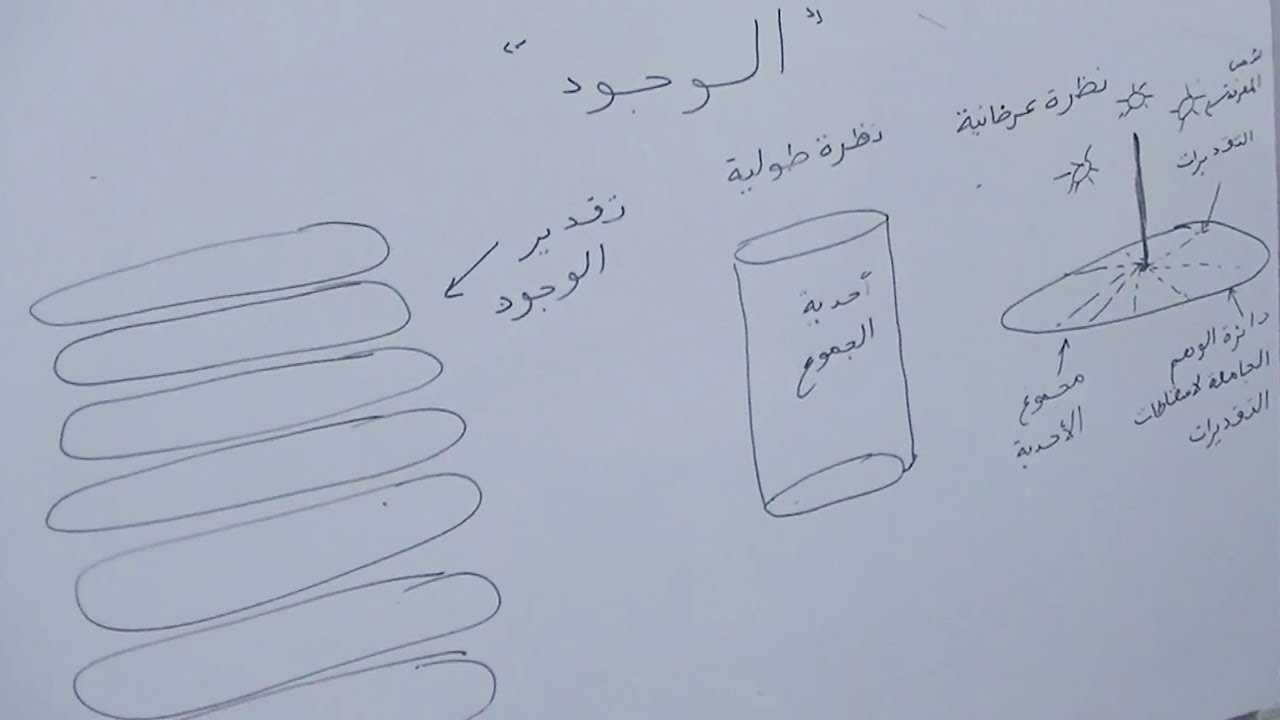 "الوجود"
نظرة عرفانية
شمس
التقديرات
دائرة الوهم
الحاملة لاسقاطات
التقديرات
مجموع
الأحدية
نظرة طولية
أحدية
الجموع
تقدير
الوجود